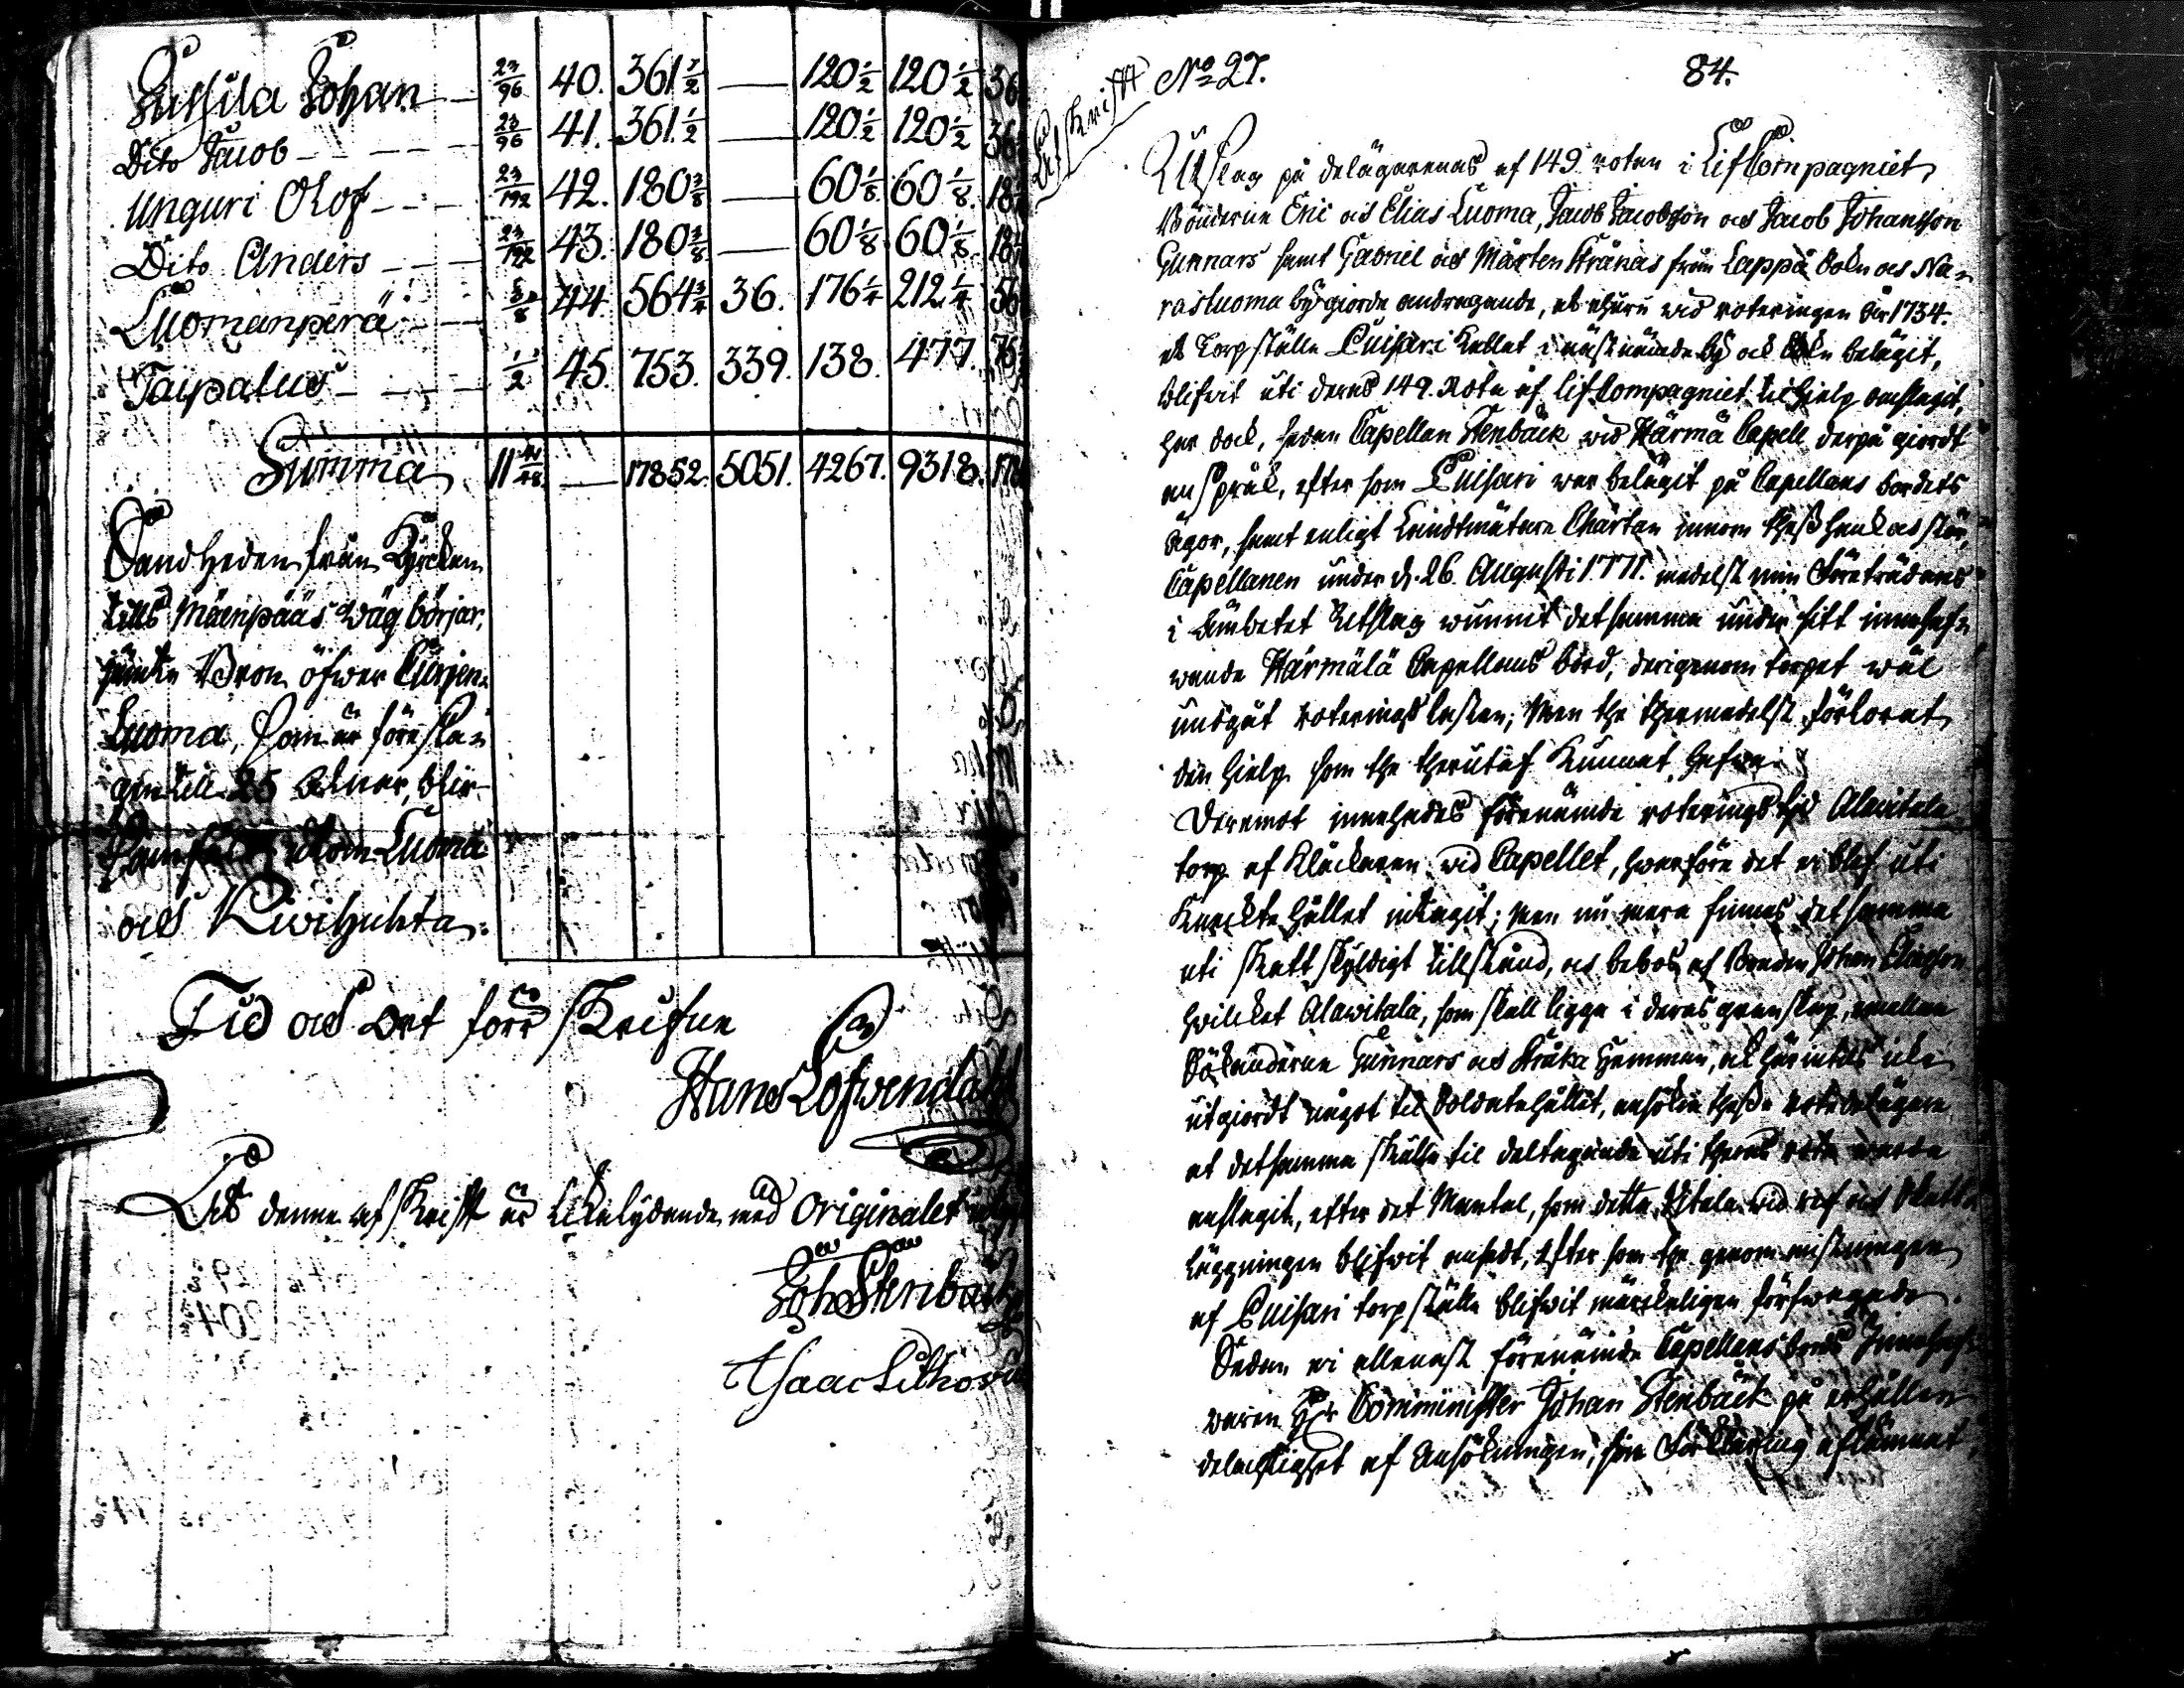 Jussila Johan 23/96 40. 361 1/2 — 120 1/2 120 1/2 36
Dito Jacob 23/96 41. 361 1/2 — 120 1/2 120 1/2 36
Unguri Olof 23/192 42. 180 3/8 — 60 1/8 60 1/8 18
Dito Anders 23/192 43. 180 3/8 — 60 1/8 60 1/8 18
Luomanperä 3/8 44. 564 3/4 36. 176 1/4 212 1/4 56
Taipalus 1/2 45. 753. 339. 138. 477. 75
Summa 11 — 17852. 5051. 4267. 9318. 178
Sandheden från Kyrckan
tills Mäenpääs wäg börjar,
jämte Bron öfwer
Luoma, som är föresla-
gen till 25 alnar, blir
Luoma
och Kivihuhta.
Tid och Ort förr skrifne
Hans Löfwendahl
Att denne afskrift är likalydande med Originalet
Joh: Stenback
Isaac Lithovius
Afskrift No 27. 84.
Utslag på delägarenas af 149 roten i Lif Compagniet
Bönderne Eric och Elias Luoma, Jacob Jacobsson och Jacob Johansson
Gunnars samt Gabriel och Mårten Kråkas från Lappå Sokn och Na-
rasluoma by giorde andragande, at ehuru wid roteringen år 1734.
et Torpställe Luisari kallat i nästnämde by och Sokn belägit,
blifvit uti deras 149. Rote af Lif Compagniet til hjelp anslagit,
har dock, sedan Capellan Stenbäck wid Härmä Capell derpå giordt
anspråk, efter som Luisari war belägit på Capellans bordets
ägor, samt enligt Landtmätare Chartan innom theß hank och stör,
Capellanen under d. 26 Augusti 1771. medelst min Företrädares
i Ämbetet Utslag wunnit detsamma under sitt innehaf-
wande Härmälä Capellans bord, derigenom torpet wäl
undgåt roteringslasten; Men the thermedelst förlorat
den hielp som the therutaf kunnat hafwa.
Deremot innehades förenämde roterings tid Alawitala
torp af Klåckaren wid Capellet, hwarföre det ei blef uti
Knecktehållet intagit; men nu mera finnes detsamma
uti skattskyldigt tillstånd, och bebos af Bonden Johan Eliasson
hwilcket Alawitala, som skall ligga i deras granskap, emellan
Sökanderne Gunnars och Kråka Hemman, ok härintils icke
utgiordt något til Soldatehållet, ansökia theße Rotedelägare
at detsamma måtte til deltagande uti theras rote warda
anslagit, efter det Mantal, som detta Witala wid ref och Skatt-
läggningen blifwit ansedt, Efter som the genom mistningen
af Luisari torpställe blifwit märckeligen förswagade.
Sedan ei allenast förenämde Capellans bords Innehaf-
waren Hr Comminister Johan Stenbäck på erhållen
delachtighet af Ansökningen, sin Förklaring aflämnat